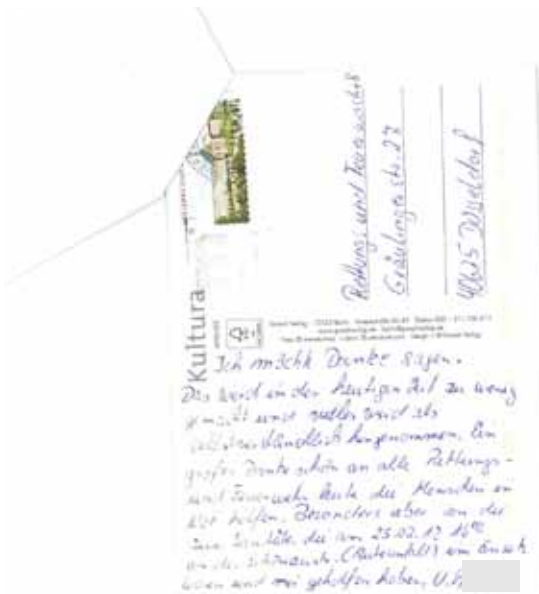 Rettungs und Feuerwache 8
Gräulingerstr. 27
40625 Düsseldorf
Kultura
Ich möchte Danke sagen.
Das wird in der heutigen Zeit zu wenig
gemacht und vieles wird als
selbstverständlich hingenommen. Ein
großes Danke schön an alle Rettungs-
und Feuerwehr Leute die Menschen in
Not helfen. Besonders aber an die
zwei Sanitäter die am 25.02.12 16⁰⁰
an der (Autounfall) am Einsatz
waren und mir geholfen haben, U.